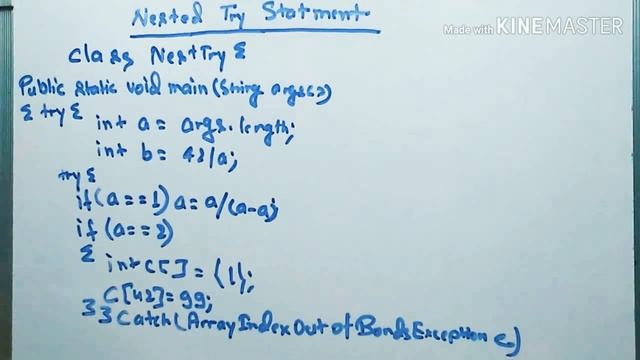 Made with KINEMASTER
Nested Try Statment
class NestTry {
Public static void main(String args[])
{ try {
int a = args.length;
int b = 42/a;
try {
if(a==1) a = a/(a-a);
if (a==2)
{
int c[] = {1};
c[42]=99;
}} Catch(ArrayIndexOutOfBondsException e)